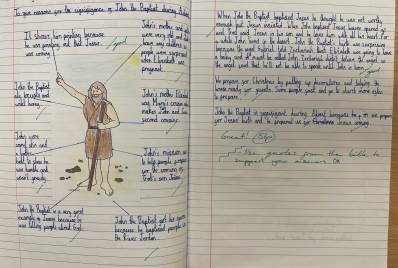 To give reasons for the significance of John the Baptist during Advent.
It shows him pointing because
he was pointing out that Jesus
was coming.
good
John's mother and
were very old and
have any children so
people were surprised
when Elizabeth was
pregnant.
John the Baptist
ate locusts and
wild honey.
John's mother Elizabeth
was Mary's cousin
makes John and Jesus
second cousins.
John wore
camel skin and a
leather
belt to show he
was humble and
wasn't greedy.
John's mission was
to help people prepare
for the coming of
God's son Jesus.
John the Baptist is a very good
example of Jesus because he
was telling people about God.
John the Baptist got his name
because he baptised people in
the River Jordan.
When John the Baptist baptised Jesus he thought he was not worthy
enough but Jesus insisted. When John baptised Jesus heaven opened up
and God said this is my son and he loves him with all his heart. For
a while John lived in the desert. John the Baptist's birth was surprising
because the angel Gabriel told Zechariah that Elizabeth was going to have
a baby and it must be called John. Zechariah didn't believe the angel so
the angel said that he will not be able to speak until John is born.
good
We prepare for Christmas by putting up decorations and
to prepare.
John the Baptist is significant during Advent because he
for Jesus' birth and he prepared us for Jesus coming.
Great!
Use quotes from the bible to
support your answers. OK